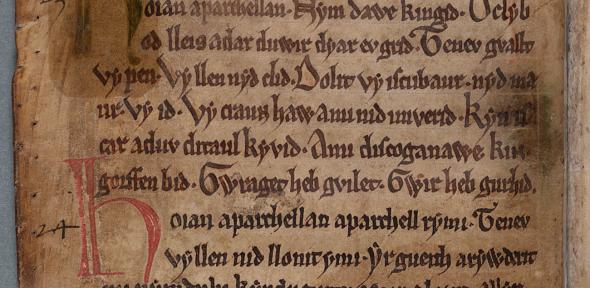 oian aparchellan. Hym dawe kingid. Oclyb
od lleis adar duwir dyar ev grid. Teneu gvallt
vy pen. Vy llen nyd clid. Dolit vy iscubaur. nyd ma
ur. vy id. Vy craun haw amii nid imverid. Kyn
car aduv ditaul kyvid. Ami discoganawe kin
gorffen bid. Gwraget heb gvilet. Gwir heb gurhid.
Hoian aparchellan aparchell rymi. Teneu
vy llen nid llonit ymi. Yr gueith arywderit